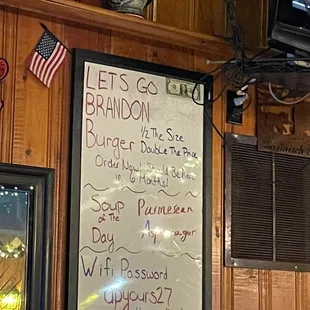 LETS GO
BRANDON
Burger ½ The Size
Double The Price
Order Now! Should Be here
in 6 Months!
Soup Parmesean
of The
Day Asparagus
Wifi Password
upyours27